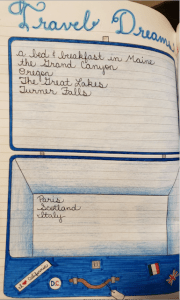 Travel Dreams
a bed & breakfast in Maine
the Grand Canyon
Oregon
The Great Lakes
Turner Falls
Paris
Scotland
Italy
I ♥ California
D.C.